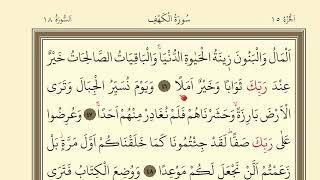 اَلْجُزْءُ ١٥ سُورَةُ الْكَهْفِ اَلسُّورَةُ ١٨
اَلْمَالُ وَالْبَنُونَ زِينَةُ الْحَيٰوةِ الدُّنْيَاۚ وَالْبَاقِيَاتُ الصَّالِحَاتُ خَيْرٌ
عِنْدَ رَبِّكَ ثَوَابًا وَخَيْرٌ اَمَلًا ﴿٤٦﴾ وَيَوْمَ نُسَيِّرُ الْجِبَالَ وَتَرَى
الْاَرْضَ بَارِزَةًۙ وَحَشَرْنَاهُمْ فَلَمْ نُغَادِرْ مِنْهُمْ اَحَدًاۚ ﴿٤٧﴾ وَعُرِضُوا
عَلٰى رَبِّكَ صَفًّاۜ لَقَدْ جِئْتُمُونَا كَمَا خَلَقْنَاكُمْ اَوَّلَ مَرَّةٍۘ بَلْ
زَعَمْتُمْ اَلَّنْ نَجْعَلَ لَكُمْ مَوْعِدًا ﴿٤٨﴾ وَوُضِعَ الْكِتَابُ فَتَرَى